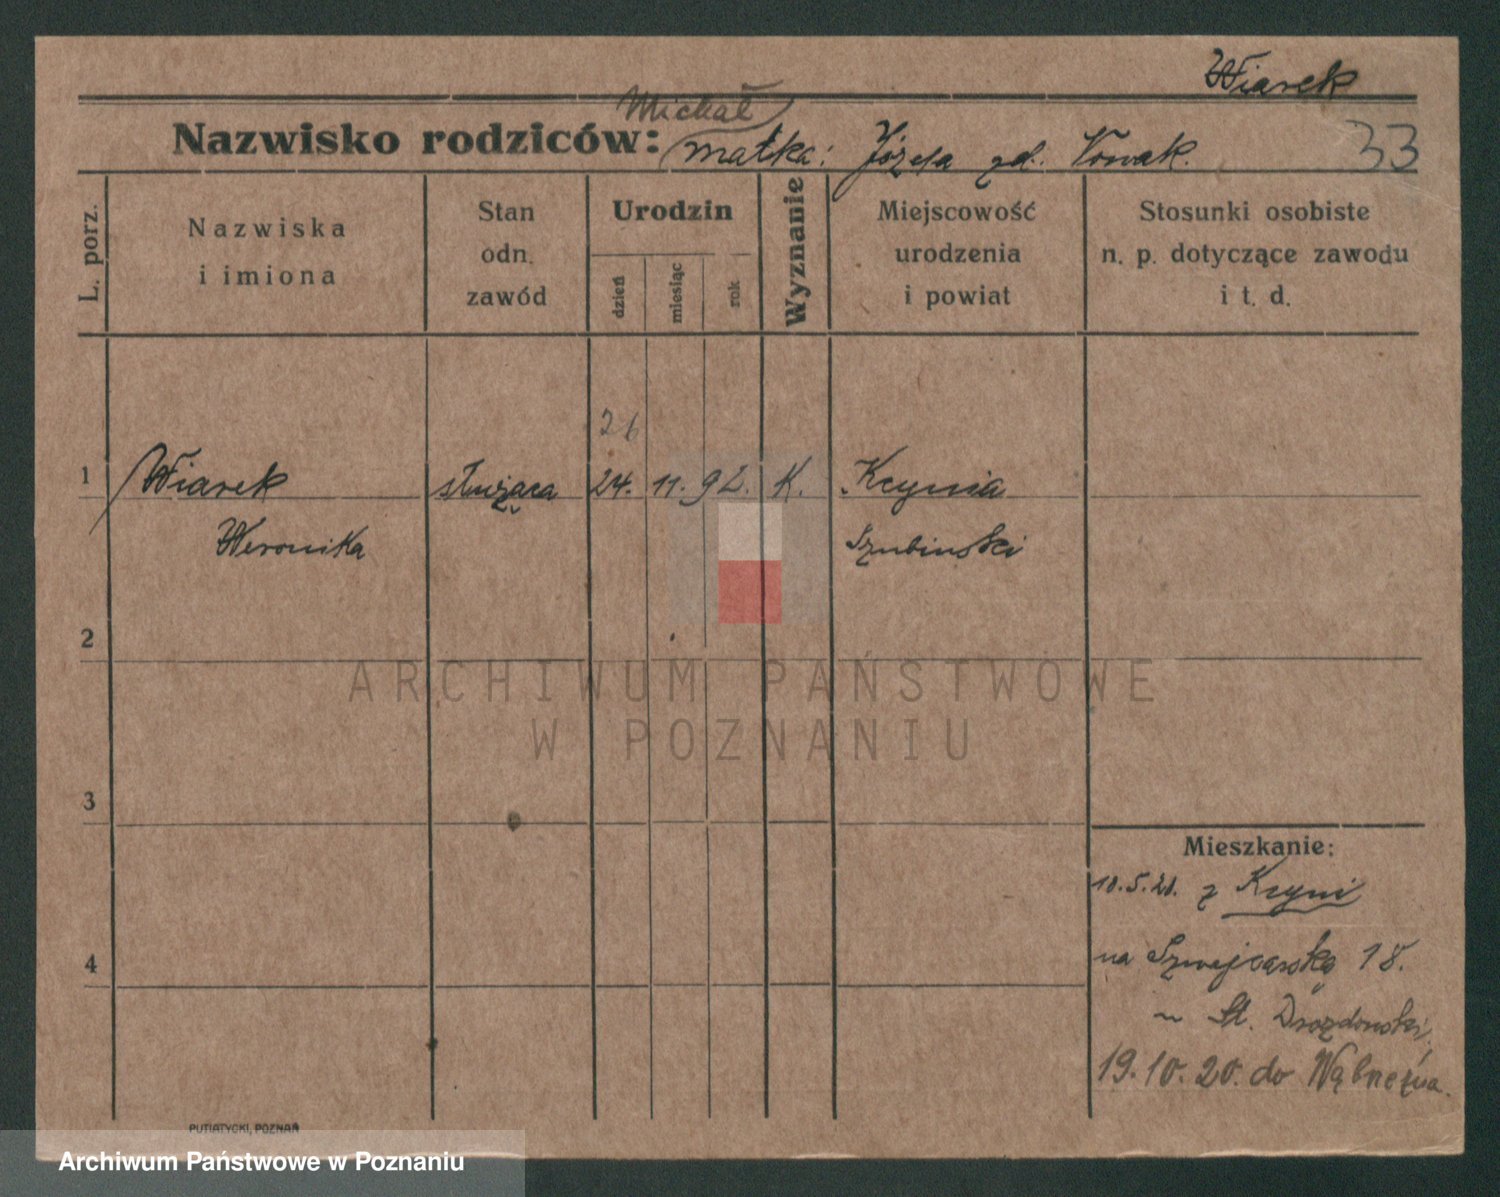 Wiarek
Michał
Nazwisko rodziców: matka: Józefa zd. Nowak.
33
L. porz.
Nazwiska
i imiona
Stan
odn.
zawód
Urodzin
dzień
miesiąc
rok
Wyznanie
Miejscowość
urodzenia
i powiat
Stosunki osobiste
n. p. dotyczące zawodu
i t. d.
26
1 Wiarek służąca 24. 11. 92. K. Kcynia
Weronika Szubinski
2
ARCHIWUM PAŃSTWOWE
W POZNANIU
3
Mieszkanie:
18.5.20. z Kcyni
na Szwajcarską 18.
4
St. Drozdowski
19.10.20. do Wąbrzeźna.
PUTIATYCKI, POZNAŃ
Archiwum Państwowe w Poznaniu